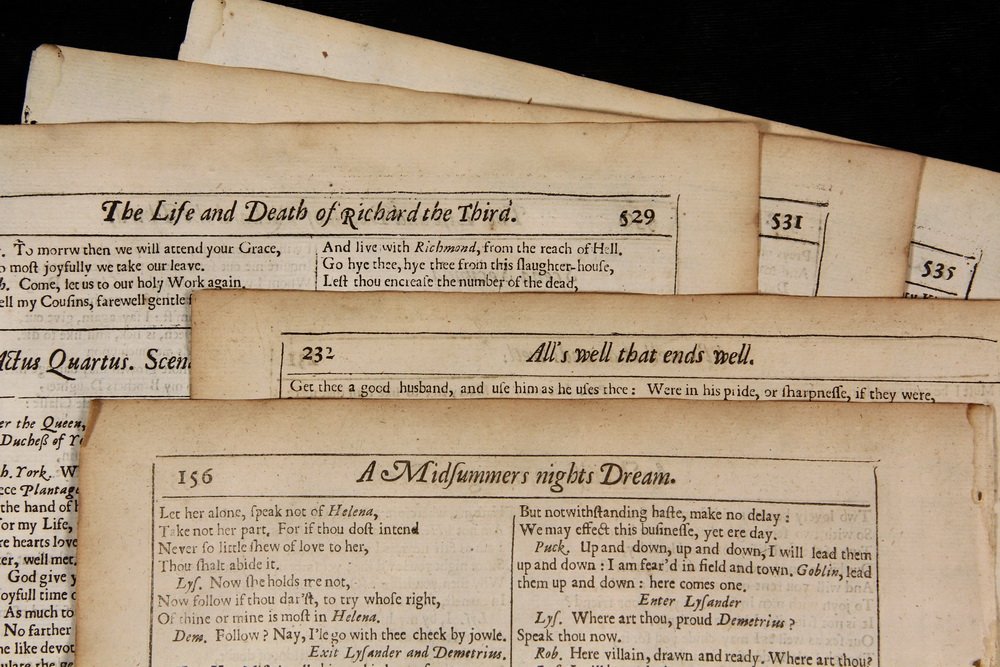 The Life and Death of Richard the Third. 529
. To morrw then we will attend your Grace,
o moſt joyfully we take our leave.
h. Come, let us to our holy Work again.
ell my Couſins, farewell gentle f
And live with Richmond, from the reach of Hell.
Go hye thee, hye thee from this ſlaughter-houſe,
Leſt thou encreaſe the number of the dead,
531
535
Actus Quartus. Scen
er the Queen,
Ducheß of Yo
h. York. W
ece Plantage
the hand of h
for my Life,
re hearts love
er, well met.
God give y
oyfull time o
As much to
No farther
he like devot
232 All's well that ends well.
Get thee a good husband, and uſe him as he uſes thee: Were in his pride, or ſharpneſſe, if they were,
156 A Midſummers nights Dream.
Let her alone, ſpeak not of Helena,
Take not her part. For if thou doſt intend
Never ſo little ſhew of love to her,
Thou ſhalt abide it.
Lyſ. Now ſhe holds me not,
Now follow if thou dar'ſt, to try whoſe right,
Of thine or mine is moſt in Helena.
Dem. Follow? Nay, I'le go with thee check by jowle.
Exit Lyſander and Demetrius.
But notwithſtanding haſte, make no delay:
We may effect this buſineſſe, yet ere day.
Puck. Up and down, up and down, I will lead them
up and down: I am fear'd in field and town. Goblin, lead
them up and down: here comes one.
Enter Lyſander
Lyſ. Where art thou, proud Demetrius?
Speak thou now.
Rob. Here villain, drawn and ready. Where art thou?